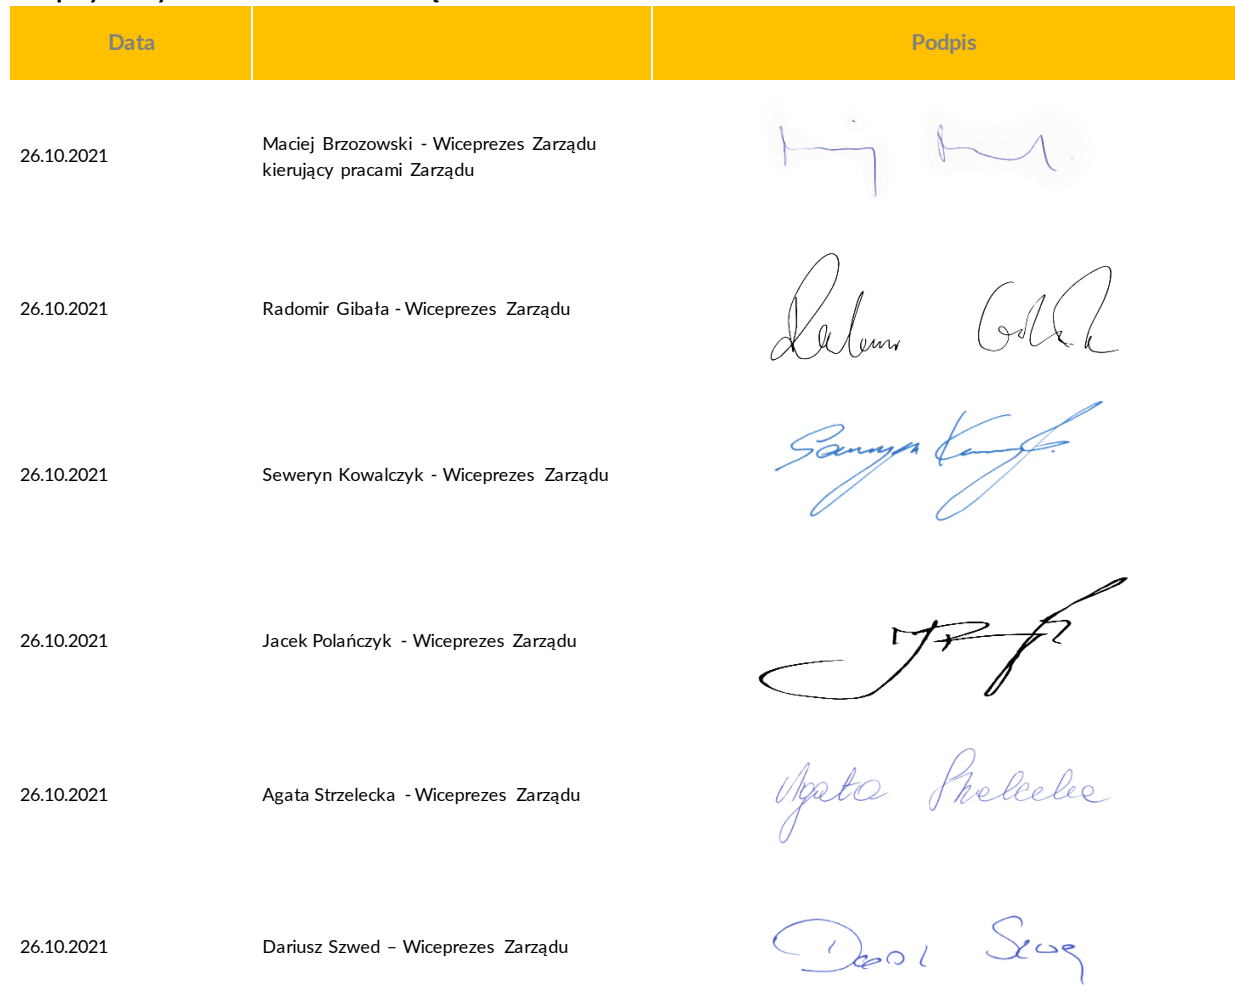 Data Podpis
26.10.2021 Maciej Brzozowski - Wiceprezes Zarządu
kierujący pracami Zarządu
26.10.2021 Radomir Gibała - Wiceprezes Zarządu
26.10.2021 Seweryn Kowalczyk - Wiceprezes Zarządu
26.10.2021 Jacek Polańczyk - Wiceprezes Zarządu
26.10.2021 Agata Strzelecka - Wiceprezes Zarządu Agata Strzelecka
26.10.2021 Dariusz Szwed – Wiceprezes Zarządu